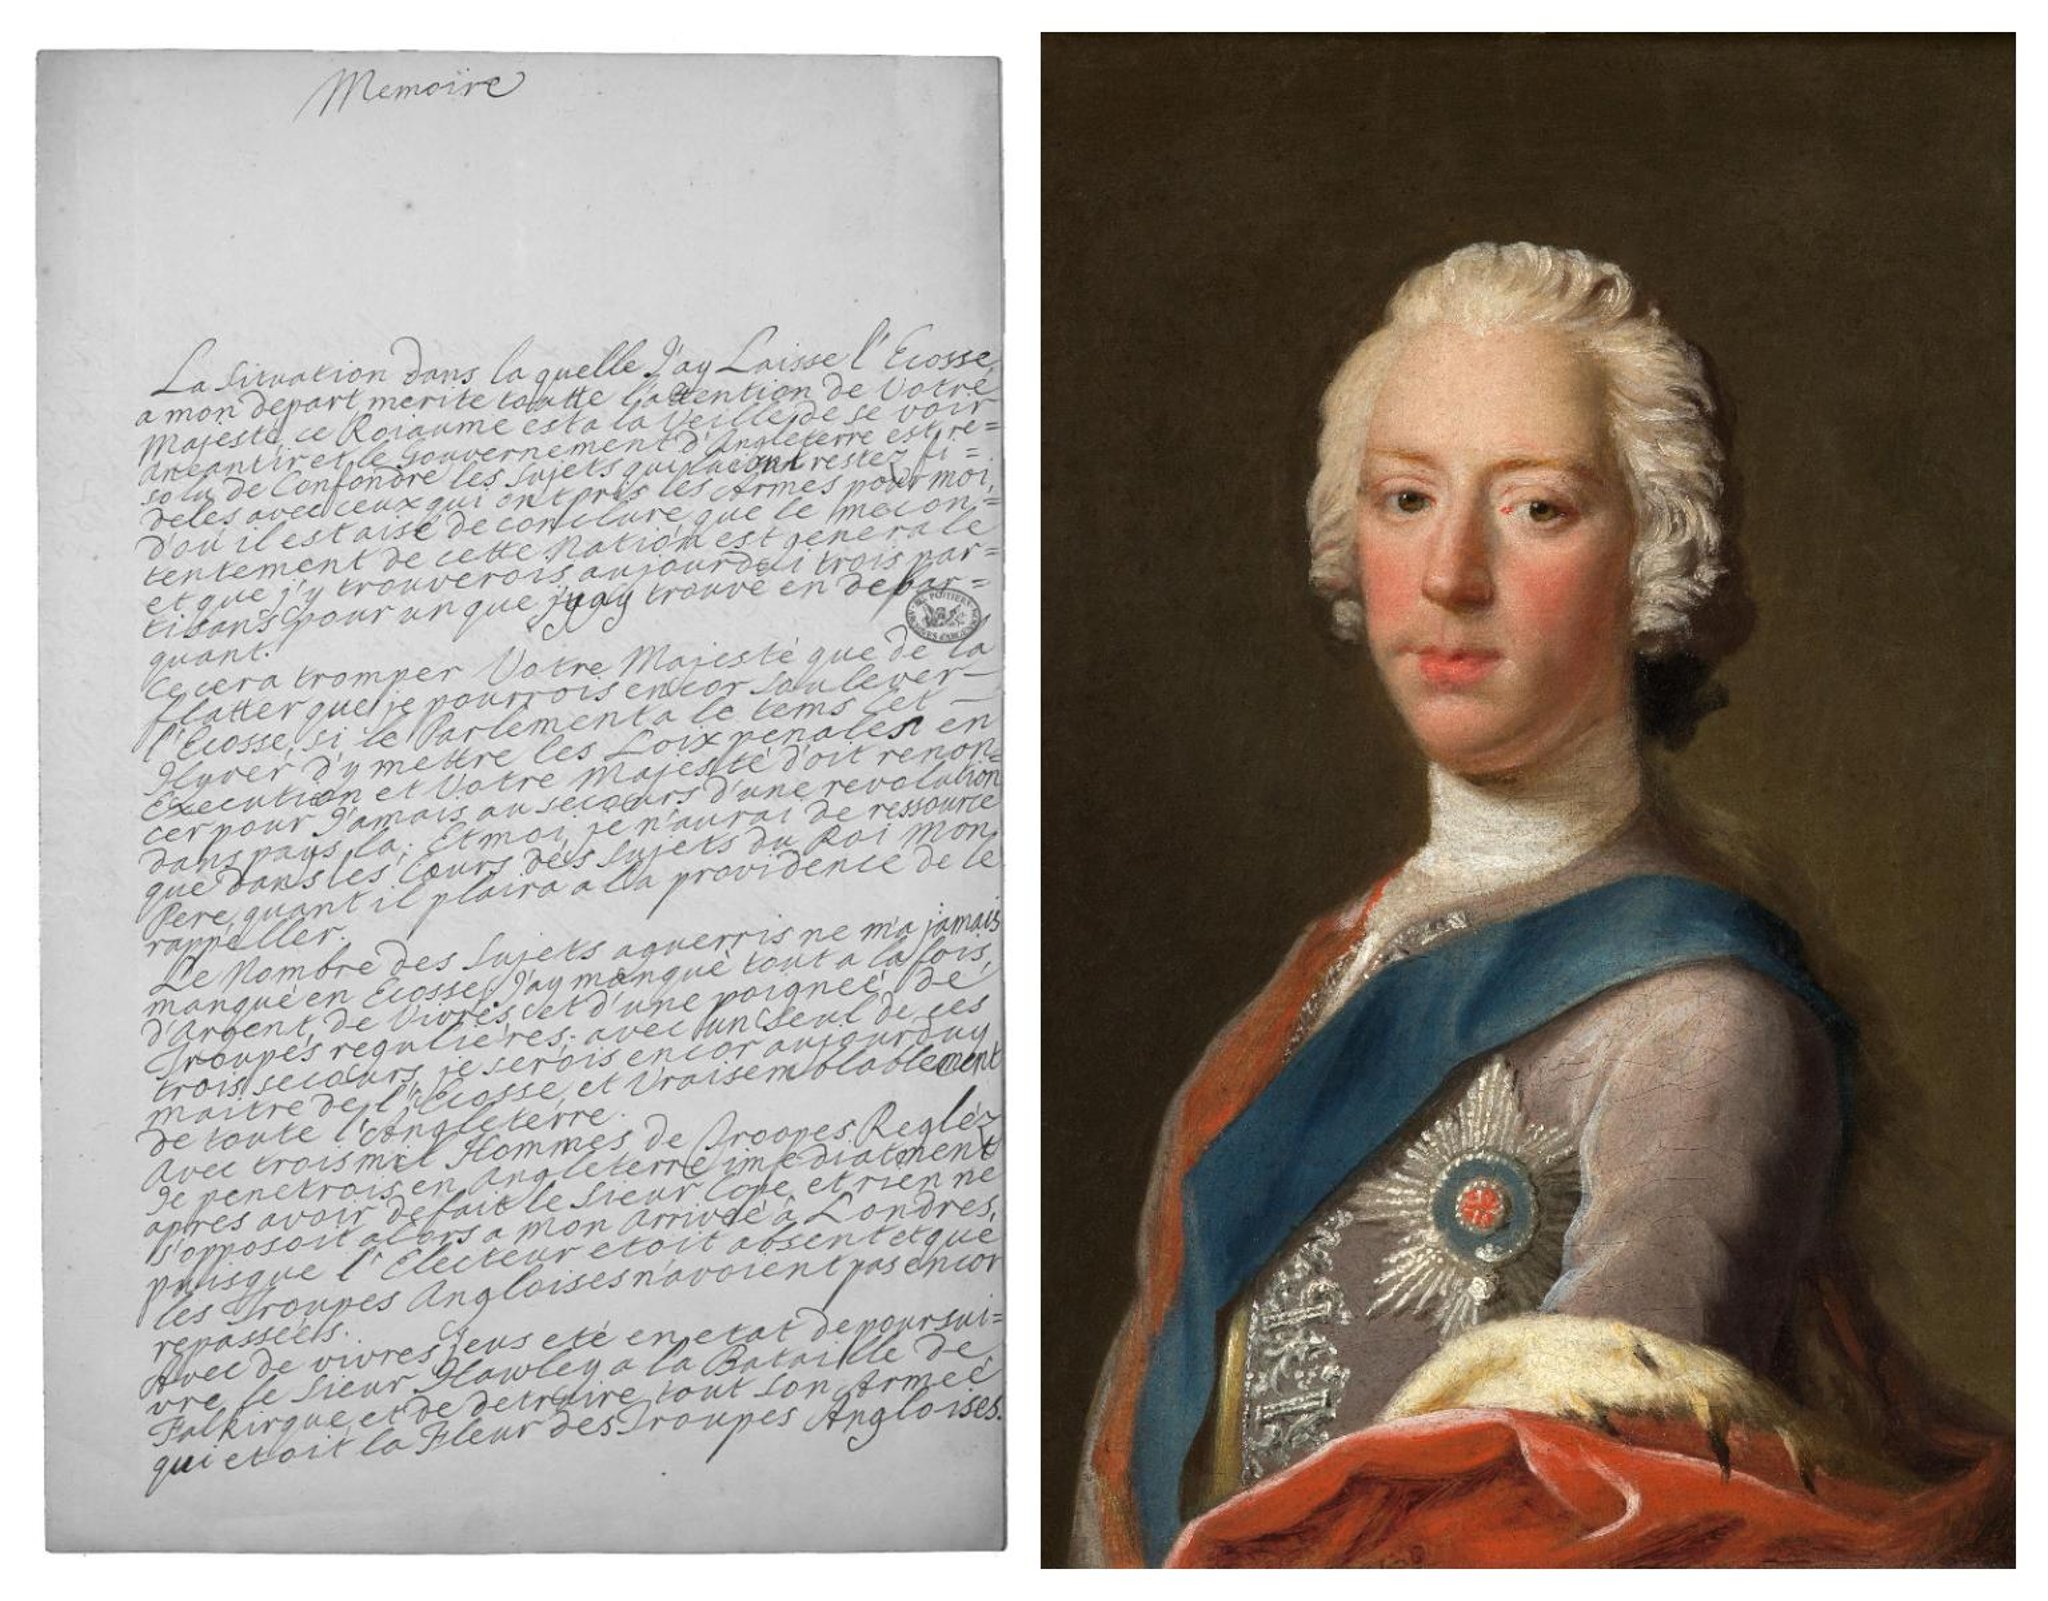 Memoire
La Situation dans la quelle J'ay Laisse l'Ecosse,
a mon depart merite toutte l'attention de Votre
Majesté, ce Roiaume est a la Veille de se voir
aneantir et le Gouvernement d'Angleterre est re=
solu de Confondre les Sujets qui lui ont restez fi=
deles avec ceux qui ont pris les Armes pour moi,
d'ou il est aisé de conclure que le mecon=
tentement de cette Nation est generale
et que j'y trouverois aujourdui trois par=
tisans pour un que j'y ay trouvé en depar=
quant.
Ce cera tromper Votre Majesté que de la
flatter que je pourrois encor soulever
l'Ecosse, si le Parlement a le tems cet
Hyver d'y mettre les Loix penales en
Execution et Votre Majesté doit renon=
cer pour J'amais au secours d'une revolution
dans pays la; Et moi, je n'aurai de ressource
que dans les Cœurs des Sujets du Roi Mon
Pere, quant il plaira a la providence de le
rappeller.
Le Nombre des Sujets aguerris ne m'a jamais
manqué en Ecosse. J'ay manqué tout a la fois,
d'Argent, de Vivres et d'une poigneé de
Troupes regulières; avec un seul de ces
trois secours je serois encor aujourduy
maitre de l'Ecosse, et Vraisemblablement
de toute l'Angleterre.
Avec trois mil Hommes de Troopes Regléz
Je penetrois en Angleterre imediatment
apres avoir defait le Sieur Cope, et rien ne
s'opposoit alors a mon Arriveé à Londres,
puisque l'Electeur etoit absent et que
les Troupes Angloises n'avoient pas encor
repasseés.
Avec de vivres j'eus eté en etat de poursui=
vre le Sieur Hawley a la Bataille de
Falkirque, et de detruire tout son Armeé
qui etoit la Fleur des Troupes Angloises.